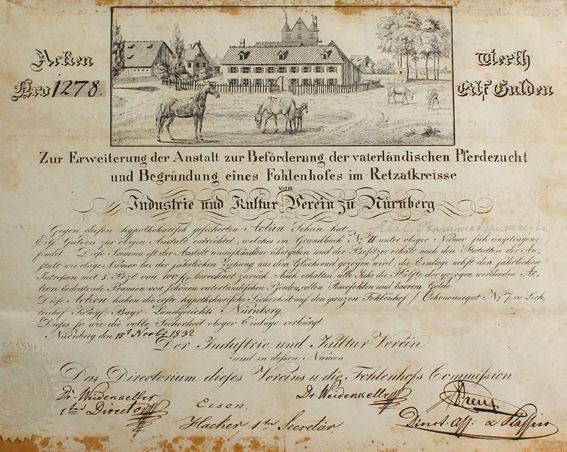 Actien
Nro 1278.
Werth
Eilf Gulden
Zur Erweiterung der Anstalt zur Beförderung der vaterländischen Pferdezucht
und Begründung eines Fohlenhofes im Retzatkreisse
von
Industrie und Kultur Verein zu Nürnberg
Gegen diesen hypothekarisch gesicherten Actien Schein hat
Eilf Gulden zur obigen Anstalt entrichtet, welches im Grundbuch No. II unter obiger Numer sich eingetragen
findet. Diese Summe ist der Anstalt unaufkündbar übergeben und der Besitzer erhält nach den Statuten der An-
stalt wie einige Numer der jährlichen Ziehung aus dem Glücksrad gezogen wird, die Einlage nebst den jährlichen
Interessen mit 5 Przt von zurück. Auch erhalten alle Jahr die Hälfte der gezogen werdenden Ac-
tien bedeutende Prämien von schönen vaterländischen Pferden, edlen Racefohlen und baarem Gelde.
Diese Actien haben die erste hypothekarische Sicherheit auf den ganzen Fohlenhof Oekonomiegut No. 7 in Lich-
tenhof Königl. Bayr. Landgerichts Nürnberg.
Dieses so wie die volle Sicherheit obiger Einlage verbürgt
Nürnberg den 15t Novbr 1832
Der Industrie und Kultur Verein
und in dessen Namen
Das Directorium dieses Vereins u. die Fohlenhofs Commission
Dr. Weidenkeller
1ter Director
Eisen.
Hacher 1ter Secretär
Dr. Weidenkeller
Kreuz
Direct. Ass. &